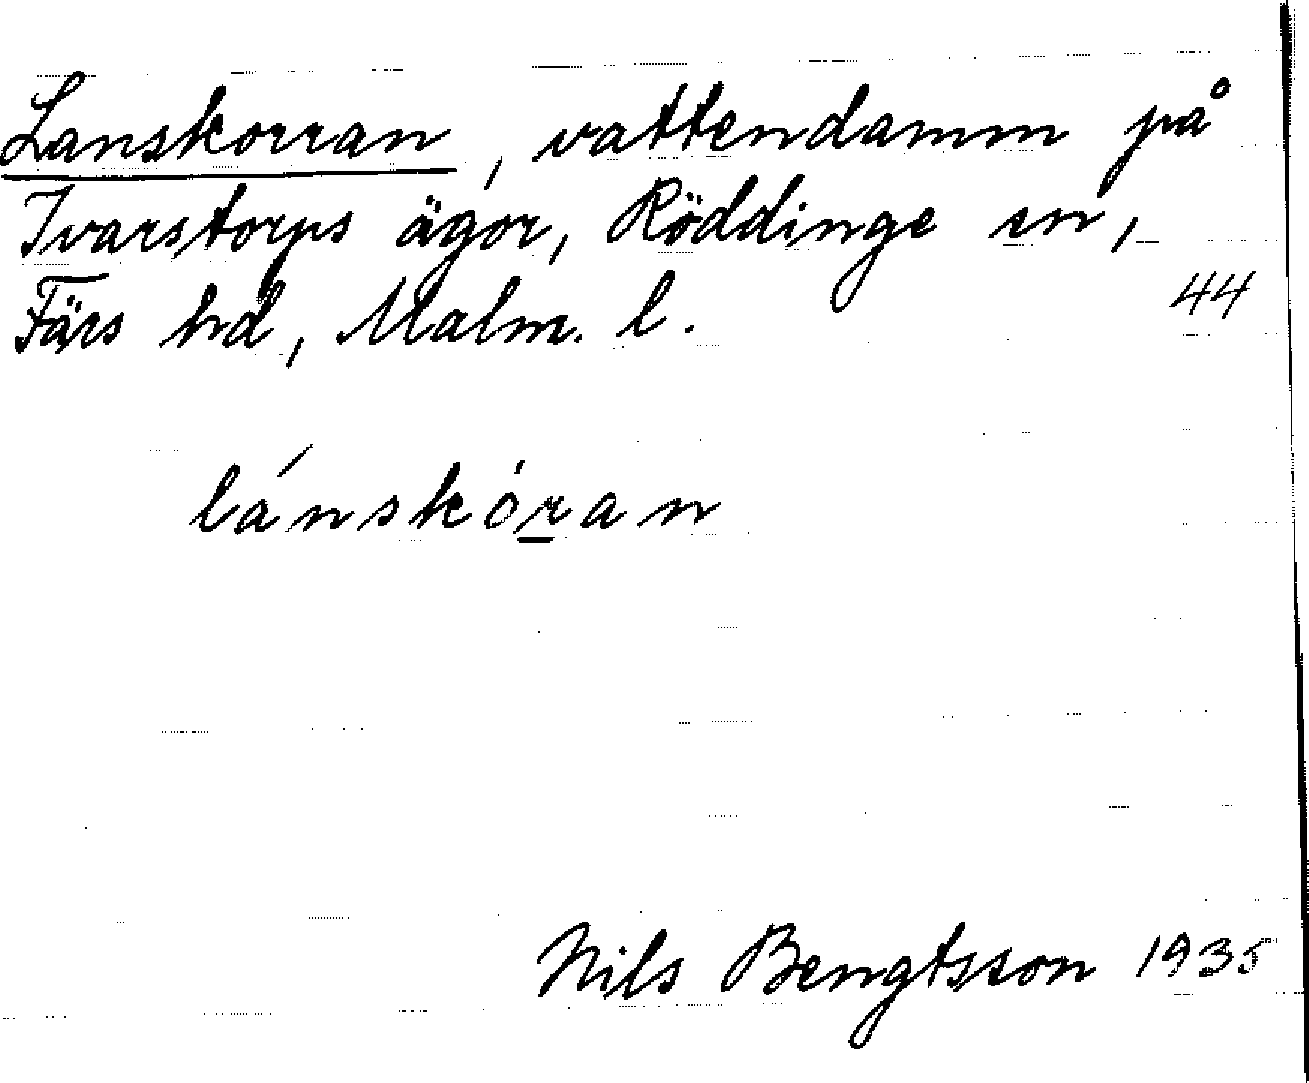 Lanskorran, vattendamm på
Ivarstorps ägor, Röddinge sn,
Färs hd, Malm. l.
44
lánskóran
Nils Bengtsson 1935